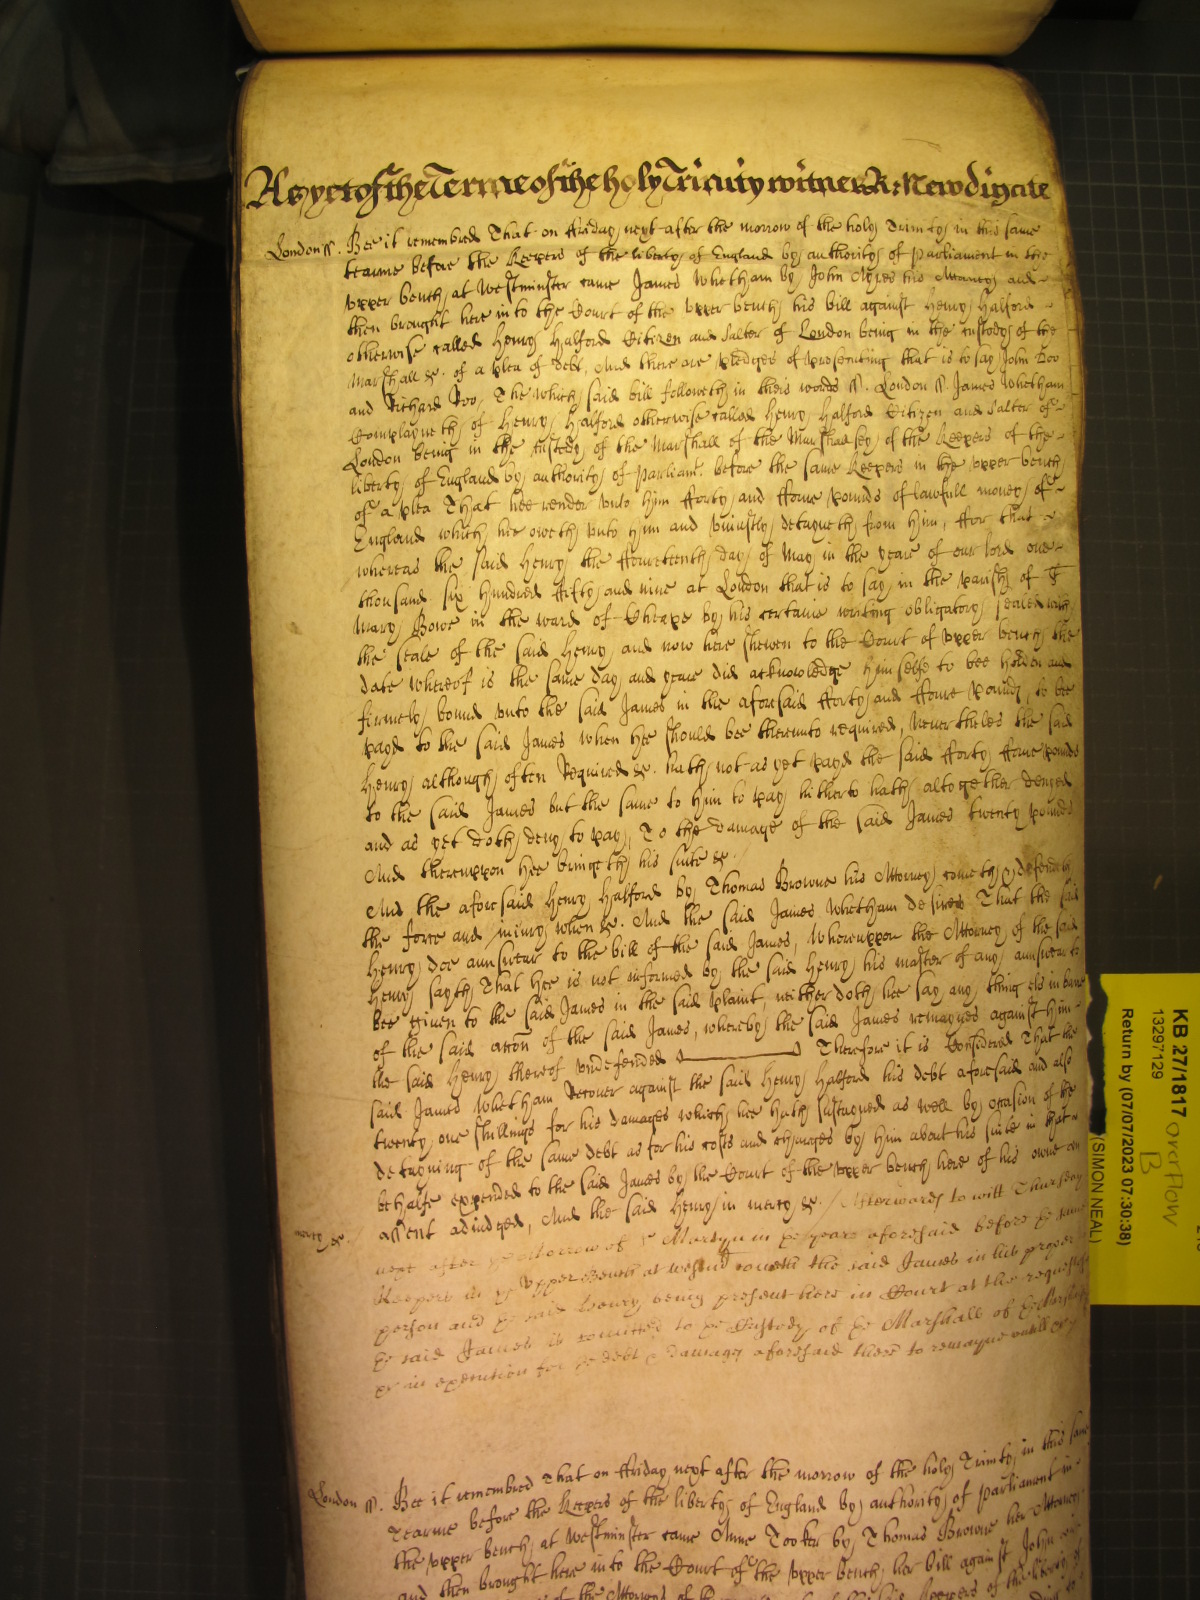 As yet of the Terme of the holy Trinity witnes R: Newdigate
London ss. Bee it remembred That on ffriday next after the morrow of the holy Trinity in this same
tearme before the Keepers of the liberty of England by authority of Parliament in the
upper bench at Westminster came James Whetham by John Ayres his Attorney and
then brought here into the Court of the upper bench his bill against Henry Halford
otherwise called Henry Halford Citizen and Salter of London being in the custody of the
Marshall &c. of a plea of debt, And there are pledges of prosecuting that is to say John Doo
and Richard Roo, The which said bill followeth in theis words ss. London ss. James Whetham
Complayneth of Henry Halford otherwise called Henry Halford Citizen and Salter of
London being in the custody of the Marshall of the Marshalsey of the Keepers of the
liberty of England by authority of Parliamt. before the same Keepers in the upper bench
of a plea That hee render unto him fforty and ffowre pounds of lawfull money of
England which hee oweth unto him and uniustly detayneth from him, ffor that
whereas the said Henry the ffowreteenth day of May in the yeare of our lord one
thousand six hundred fifty and nine at London that is to say in the parish of St
Mary Bowe in the ward of Cheape by his certaine writing obligatory sealed with
the seale of the said Henry and now here shewen to the Court of upper bench the
date whereof is the same day and yeare did acknowledge himselfe to bee holden and
firmely bound unto the said James in the aforesaid fforty and ffowre pounds, to bee
payd to the said James when hee should bee thereunto required, Nevertheles the said
Henry although often Required &c. hath not as yet payd the said fforty ffowre pounds
to the said James but the same to him to pay hitherto hath altogether denyed
and as yet doth deny to pay, To the damage of the said James twenty pounds
And thereuppon hee bringeth his suite &c.
And the aforesaid Henry Halford by Thomas Browne his Attorney cometh & defendeth
the force and iniury when &c. And the said James Whetham desires That the said
Henry doe aunswear to the bill of the said James, Whereuppon the Attorney of the said
Henry sayth That hee is not informed by the said Henry his master of any aunswear to
bee given to the said James in the said plaint, neither doth hee say any thing els in barre
of the said accon of the said James, whereby the said James remaynes against him
the said Henry thereof undefended Therefore it is Considered That the
said James Whetham Recover against the said Henry Halford his debt aforesaid and also
twenty one shillings for his damages which hee hath sustayned as well by occasion of the
detayning of the same debt as for his costs and charges by him about his suite in that
behalfe expended to the said James by the Court of the upper bench here of his owne
assent adiudged, And the said Henry in mercy &c. / Afterwards to witt Thursday
mercy &c.
next after ye Morrow of St Martyn in ye yeare aforesaid before ye same
Keepers in ye Upper Bench at Westmr cometh the said James in his proper
person and ye said Henry being present here in Court at the request of
ye said James is comitted to ye Custody of ye Marshall of ye
&c in execution for ye debt & damages aforesaid there to remayne untill &c
London ss. Bee it remembred That on ffriday next after the morrow of the holy Trinity in this same
Tearme before the Keepers of the liberty of England by authority of Parliament in
the upper bench at Westminster came Anne Tooker by Thomas Browne her Attorney
and then brought here into the Court of the upper bench her bill against John
of the Attorneys of
Keepers of the liberty of
KB 27/1817 overflow
13297129 B
Return by (07/07/2023 07:30:38)
(SIMON NEAL)